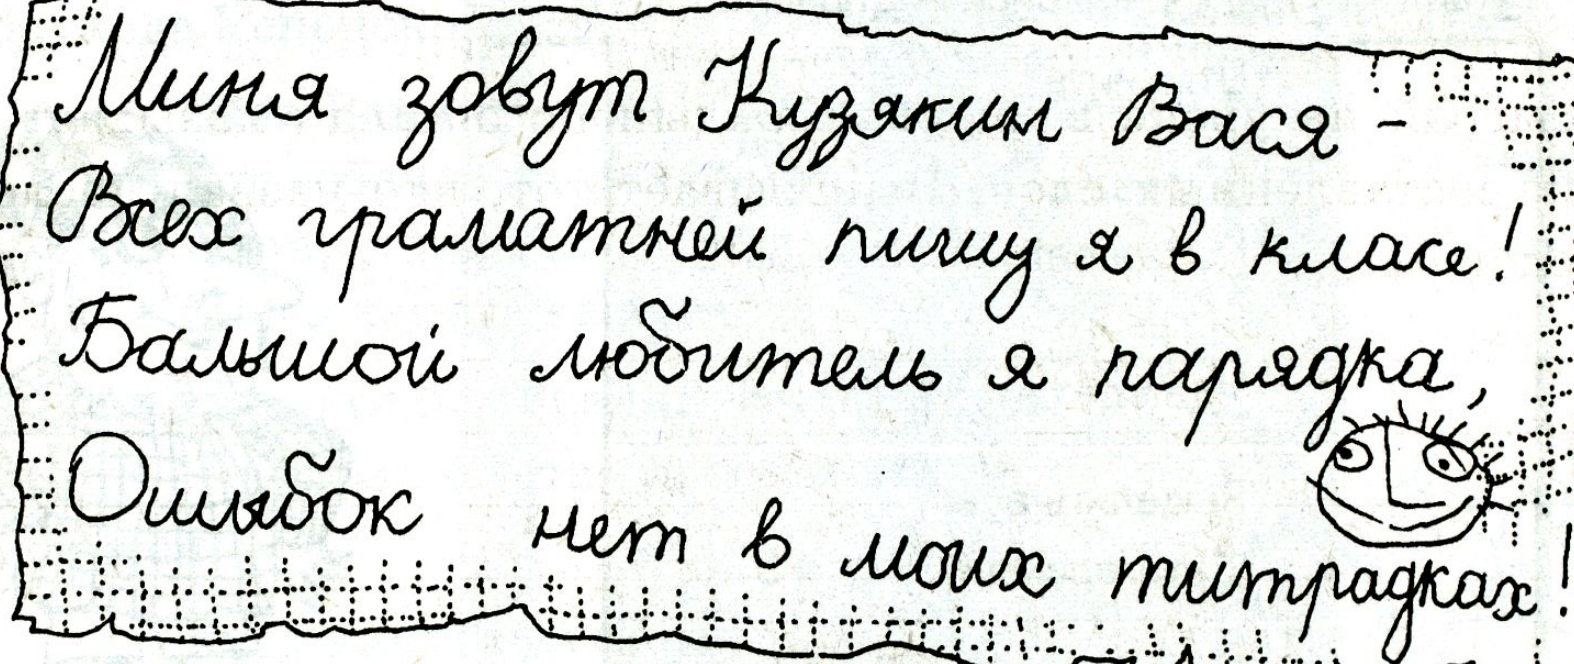 Миня зовут Кузякин Вася -
Всех граматней пишу я в класе!
Балшой любитель я парядка,
Ошыбок нет в моих титрадках!